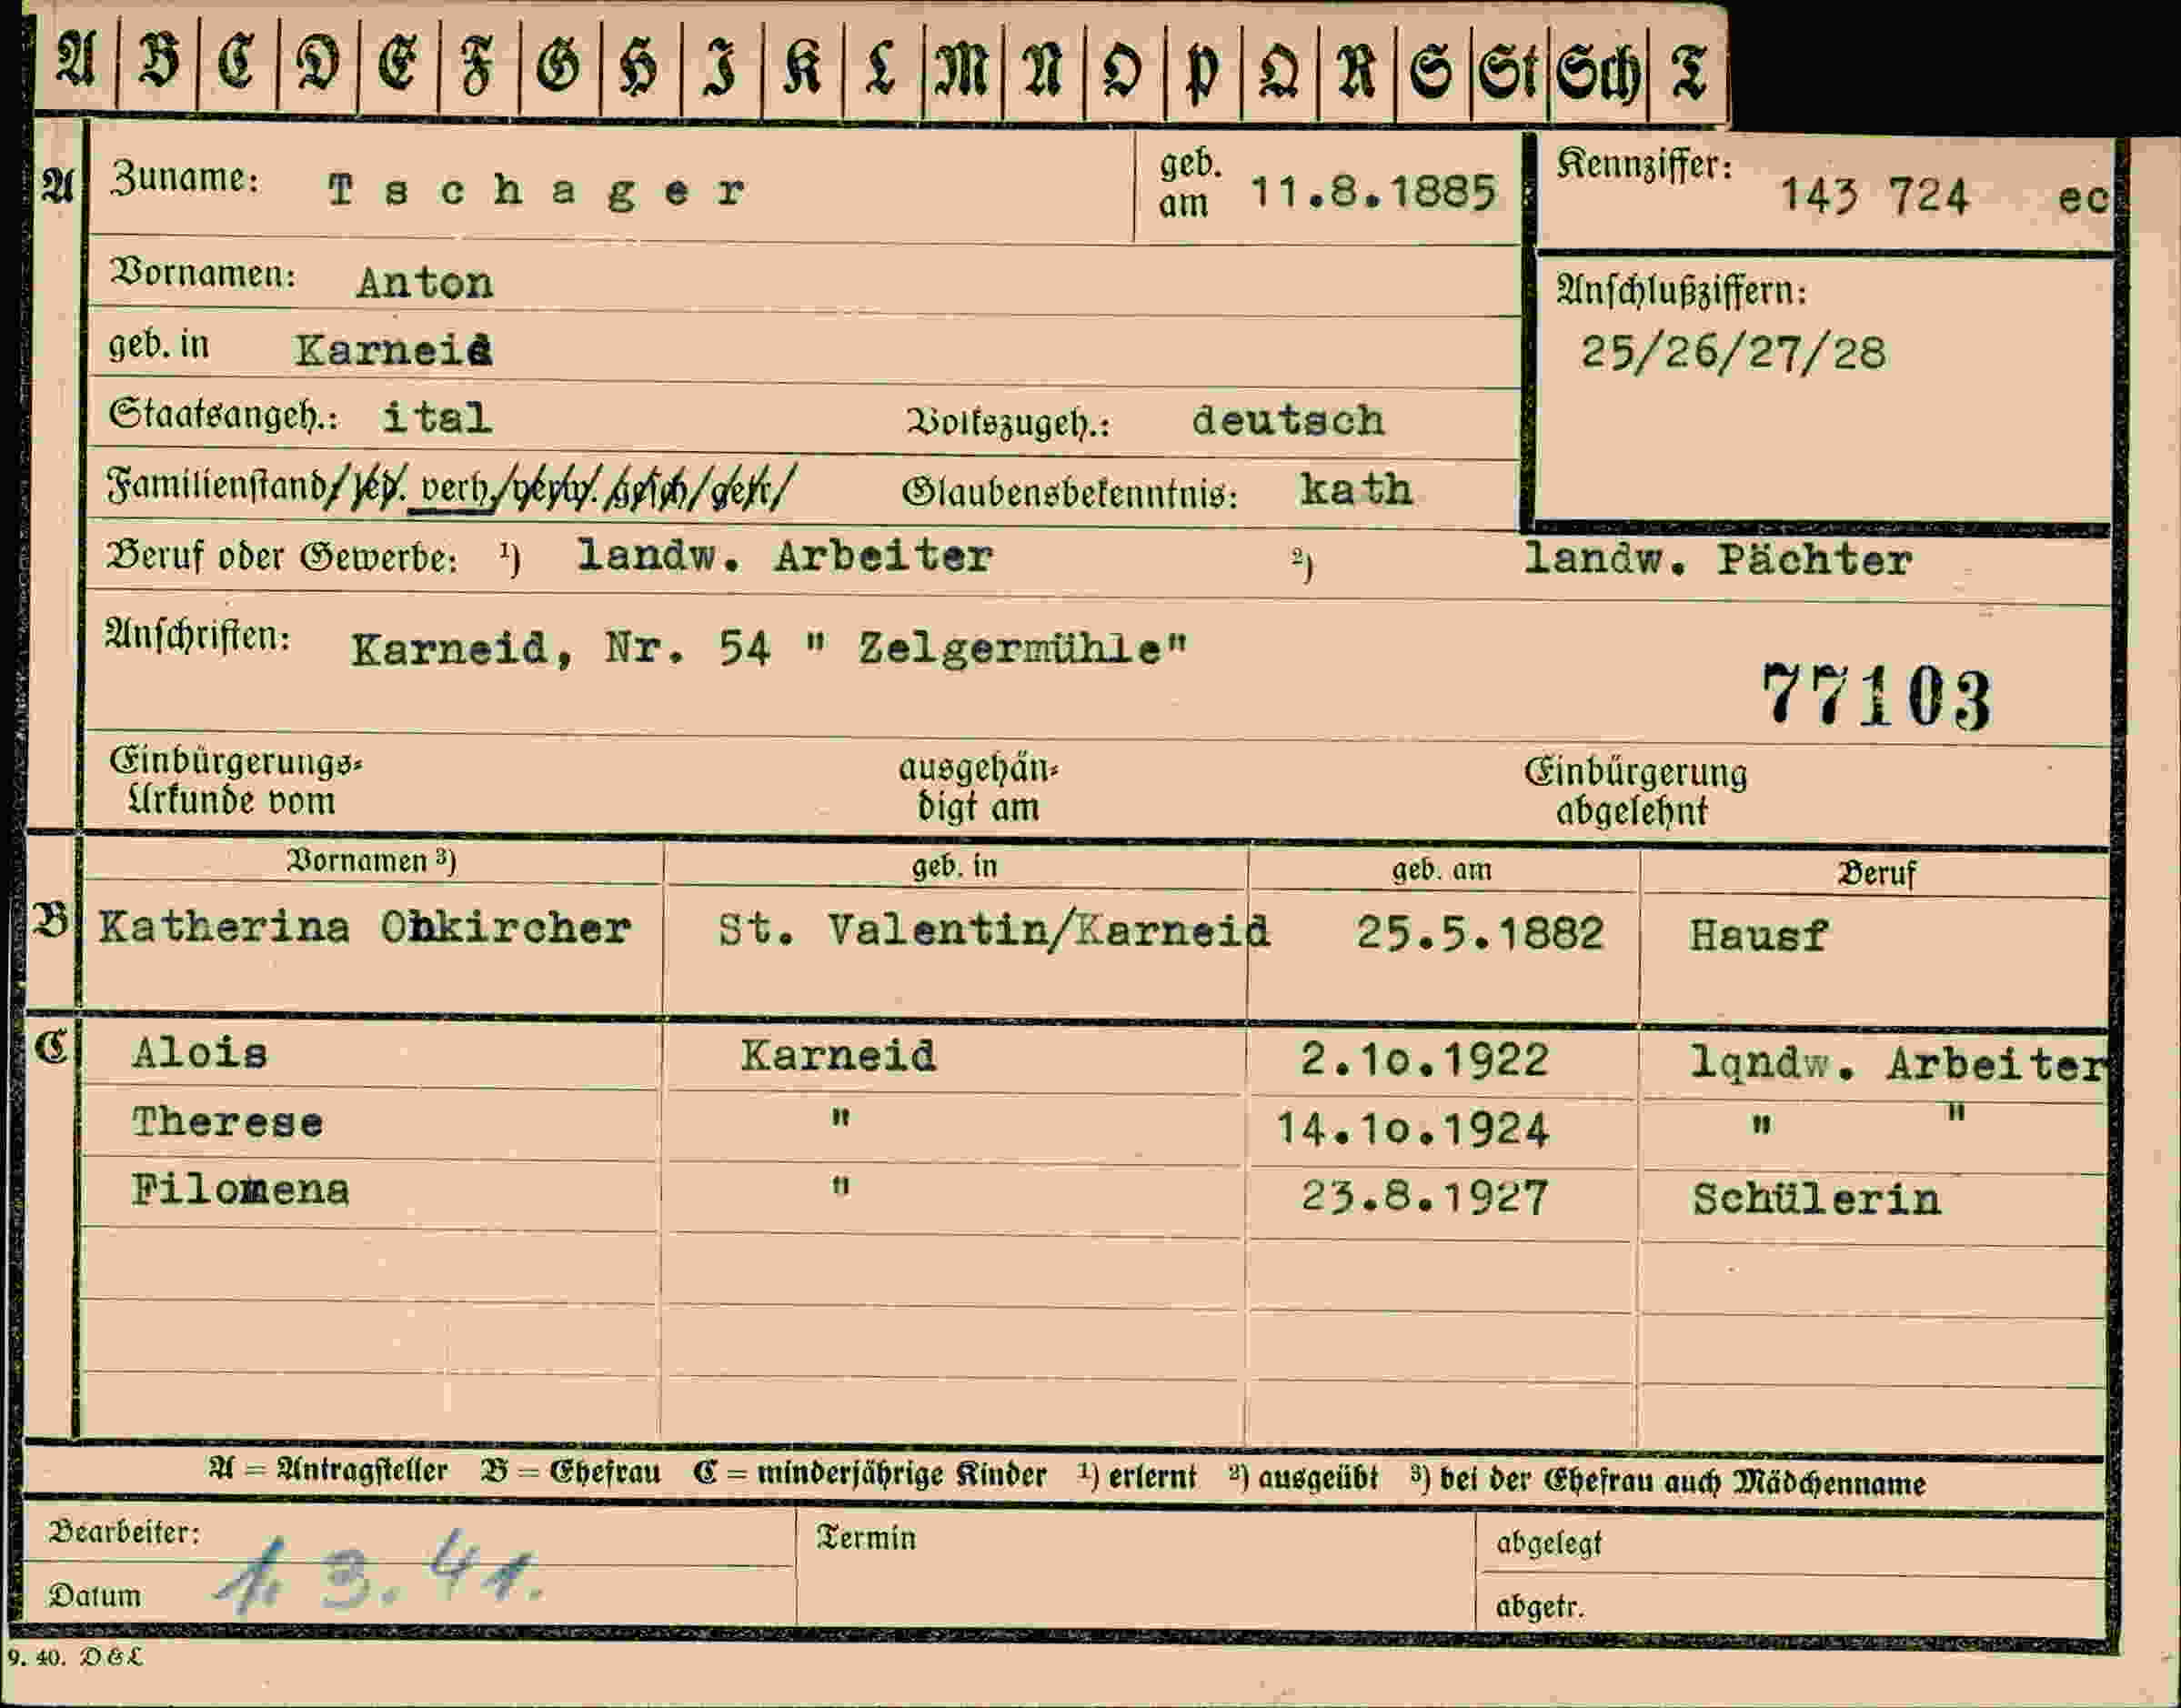 A B C D E F G H I K L M N O P Q R S St Sch T
A Zuname: Tschager geb. am 11.8.1885 Kennziffer: 143 724 ec
Vornamen: Anton Anschlußziffern:
geb. in Karneid 25/26/27/28
Staatsangeh.: ital Volkszugeh.: deutsch
Familienstand/led. verh./verw./gesch/getr/ Glaubensbekenntnis: kath
Beruf oder Gewerbe: 1) landw. Arbeiter 2) landw. Pächter
Anschriften: Karneid, Nr. 54 " Zelgermühle"
77103
Einbürgerungs- ausgehän- Einbürgerung
Urkunde vom digt am abgelehnt
Vornamen 3) geb. in geb. am Beruf
B Katherina Ohkircher St. Valentin/Karneid 25.5.1882 Hausf
C Alois Karneid 2.10.1922 lqndw. Arbeiter
Therese " 14.10.1924 " "
Filomena " 23.8.1927 Schülerin
A = Antragsteller B = Ehefrau C = minderjährige Kinder 1) erlernt 2) ausgeübt 3) bei der Ehefrau auch Mädchenname
Bearbeiter: Termin abgelegt
Datum 1. 3. 41. abgetr.
9. 40. D & L